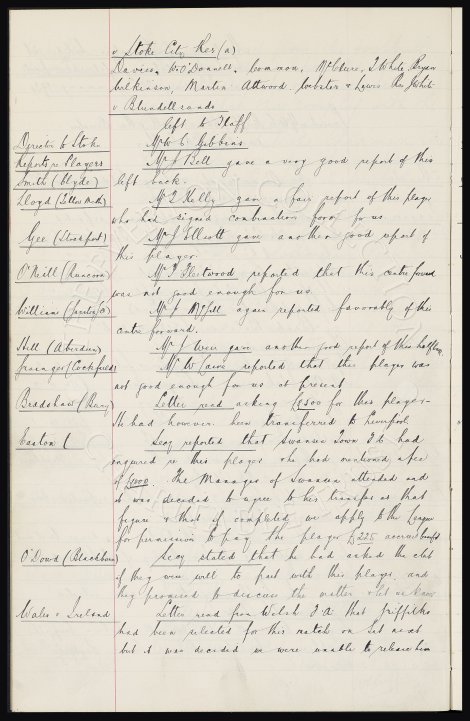 v Stoke City Res (a)
Davies, W. O'Donnell, Common, McClure, T White, Bryan
Wilkinson, Martin Attwood, Webster & Lewis Res J White
v Blundellsands
left to Staff
Director to Stoke Mr W C Gibbins
Reports re Players Mr J Bell gave a very good report of this
Smith (Clyde) left back.
Lloyd Mr T Kelly gave a fair report of this player
who had signed contraction form for us
Gee (Stockport) Mr J Elliott gave another good report of
this player.
O'Neill (Runcorn) Mr T Fleetwood reported that this centre forward
was not good enough for us
William Mr J again reported favorably of this
centre forward.
Hill (Aberdeen) Mr J Weir gave another good report of this halfback
Grainger (Cockfield) Mr W Caine reported that this player was
not good enough for us at present
Bradshaw (Bury) Letter read asking £6500 for this player.
He had however been transferred to Liverpool.
Easton Secy reported that Swansea Town F.C. had
enquired re this player & he had mentioned a fee
of £1000. The Manager of Swansea attended and
it was decided to agree to his transfer at that
figure & that if completed we apply to the League
for permission to pay the player £225 accrued benefit
O'Dowd (Blackburn) Secy stated that he had asked the club
if they were will to part with this player, and
they promised to discuss the matter & let us know.
Wales v Ireland Letter read from Welsh F.A. that Griffiths
had been selected for this match on Sat next
but it was decided we were unable to release him